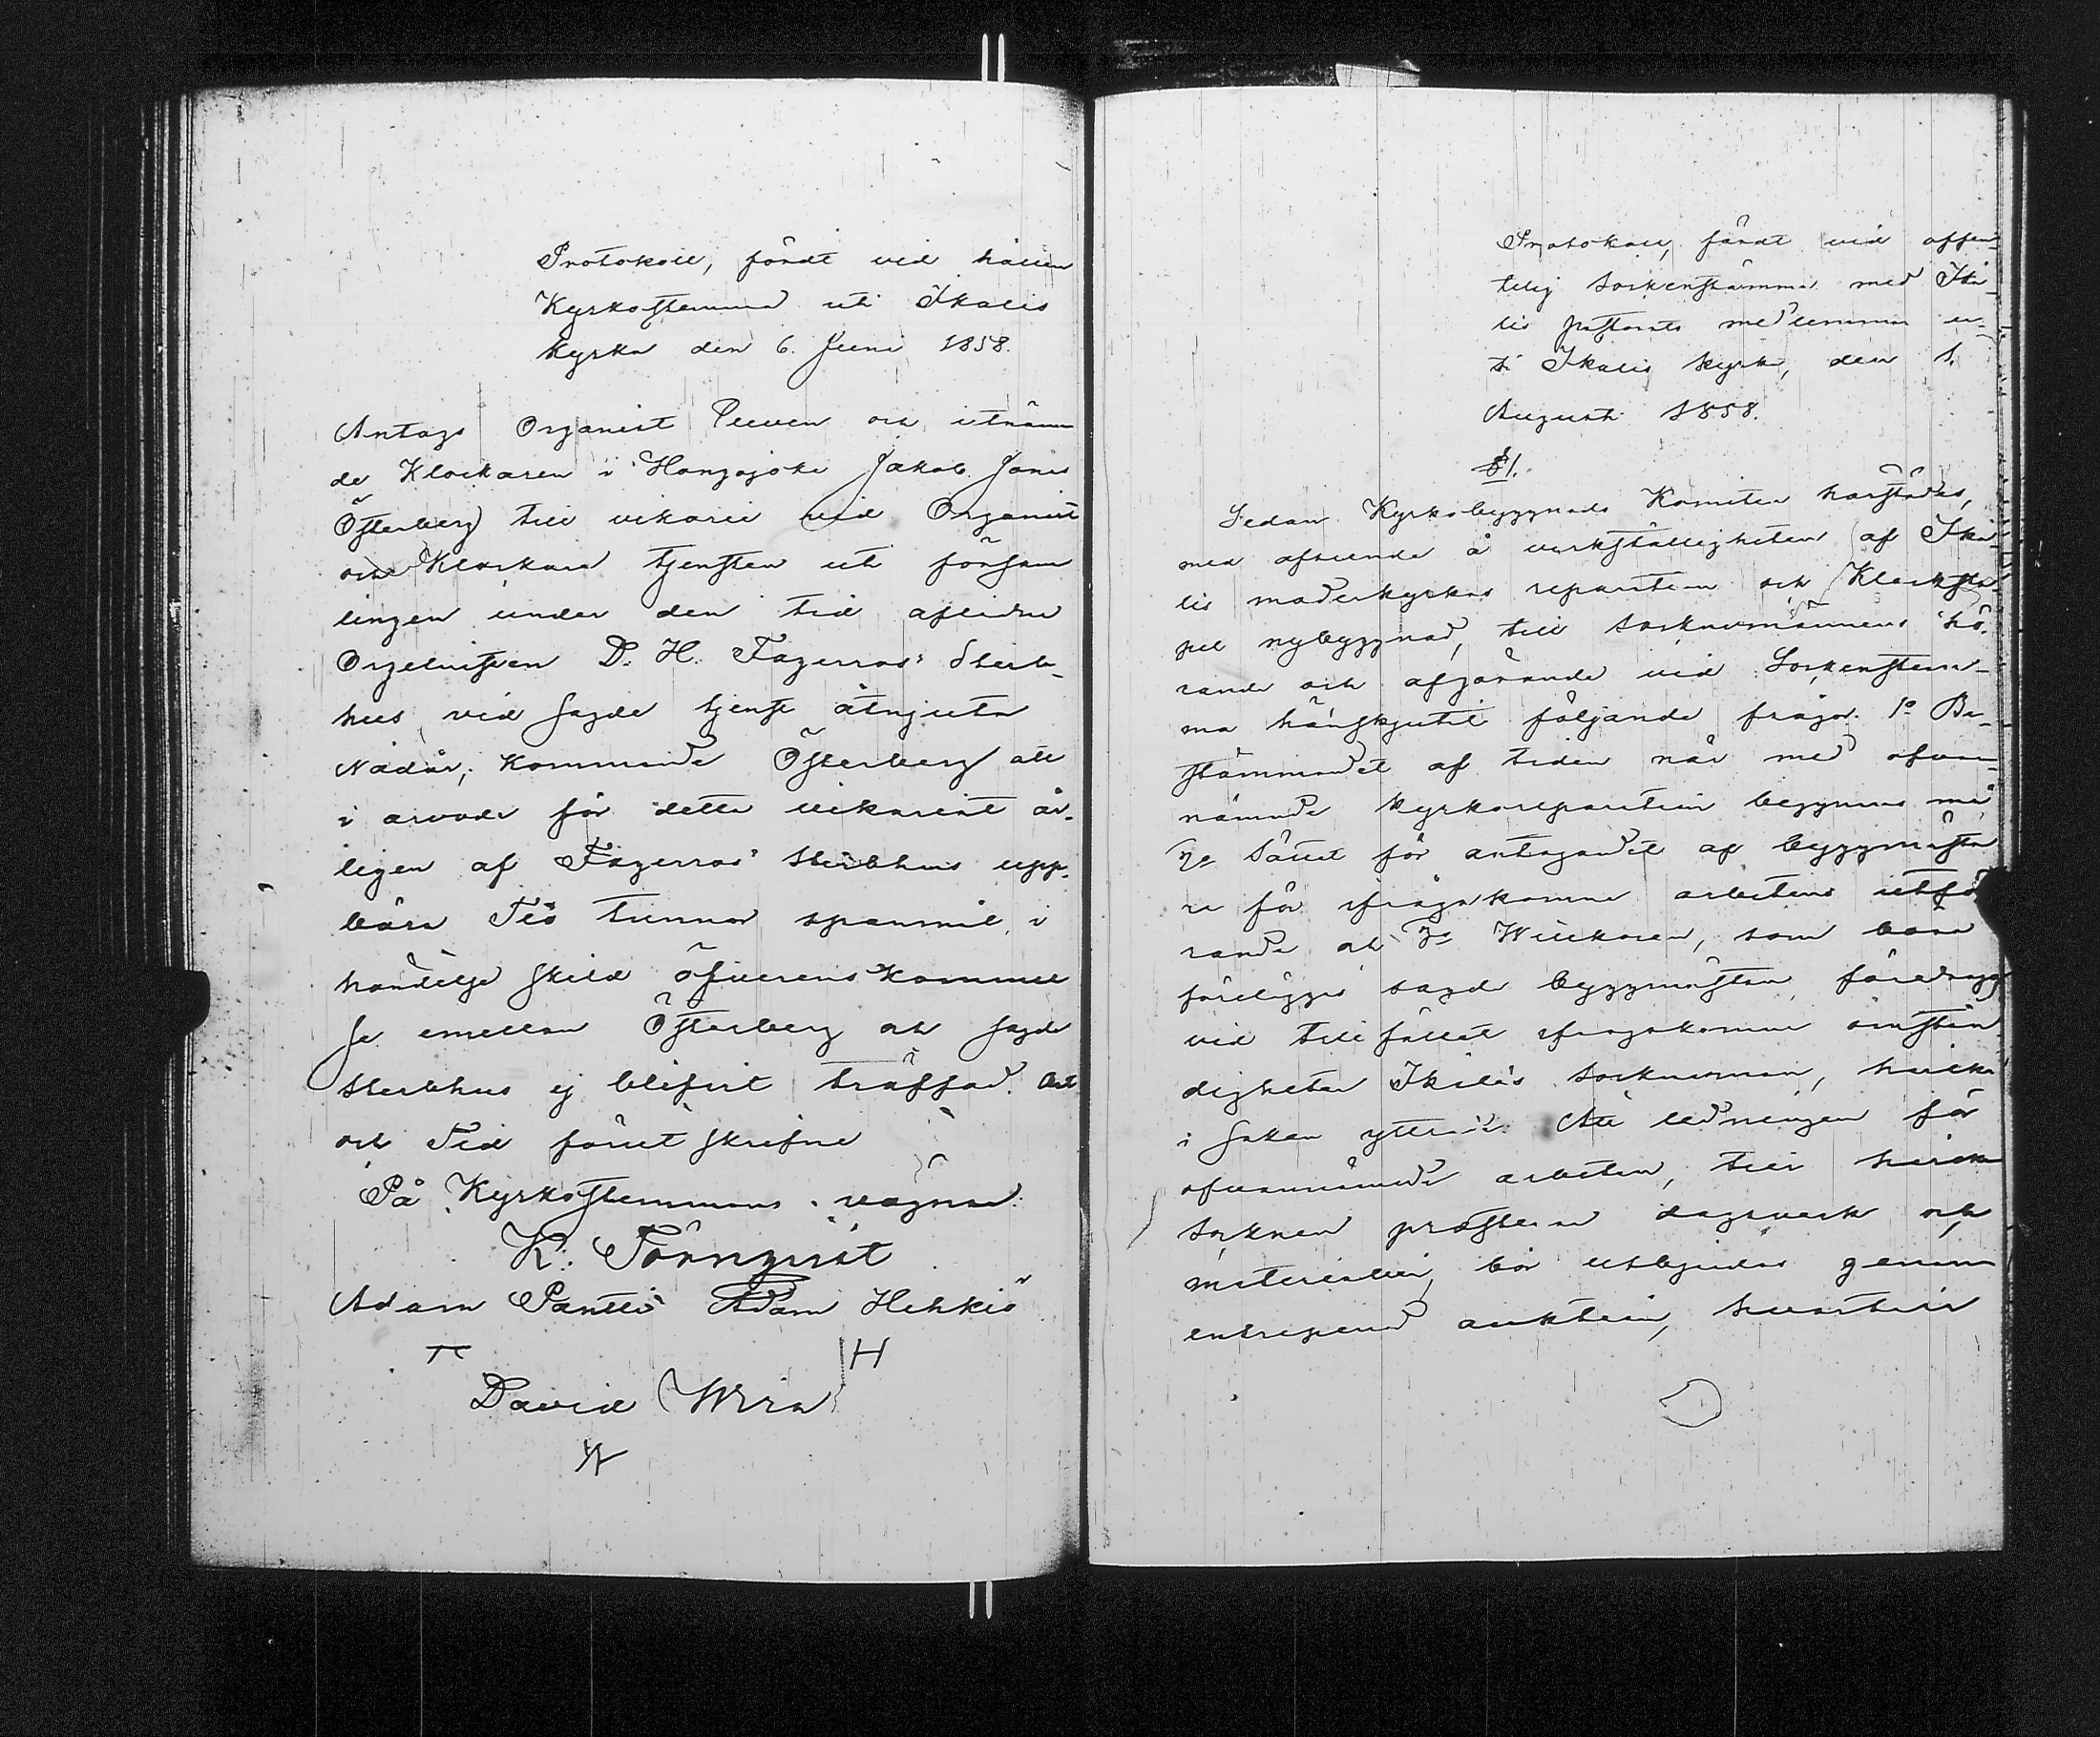 Protokoll, fördt vid hållen
Kyrkostemma uti Ikalis
kyrka den 6. Juni 1858.
Antogs Organist Eleven och utnäm̄
de Klockaren i Hongojoki Jakob Jonas
Österberg till vikarie vid Organist
och Klockare tjensten uti försam
lingen under den tid aflidne
Orgelnisten D. H. Fagerroos' Sterb-
hus vid sagde tjenst åtnjuter
Nådår; kommande Österberg att
i arvode för detta vikariat år-
ligen af Fagerroos' Sterbhus upp-
bära Tio tunnor spanmål, i
händelse skild öfverenskommel
se emellan Österberg och sagde
sterbhus ej blifvit träffad. Ort
och Tid förut skrifne
På Kyrkostemmans vägnar:
K. Törnqvist
Adam Pantti Adam Heikkiö
H
David Wira
Protokoll, fördt vid offen-
telig sockenstämma med Ika-
lis pastorats medlemmar u-
ti Ikalis kyrka, den 1.
Augusti 1858.
§1.
Sedan Kyrkobyggnads Komiten härstädes,
med afseende å verkställigheten af Ika-
lis moderkyrkas reparation och Klocksta-
pel nybyggnad, till Sockenmännens hö-
rande och afgörande vid Sockenstem-
ma hänskjutit följande frågor: 1º Be-
stämmandet af tiden når med ofvan-
nämnde kyrkoreparation begynnas må
2º Sättet för antagandet af byggmästa
re för ifrågakomne arbetens utfö-
rande och 3º Willkoren, som böra
föreläggas sagde byggmästare, föredrogs
vid tillfället ifrågakomne omstän
digheter Ikalis sockneman, hvilka
i saken yttrade: Att ledningen för
ofvannämnde arbeten, till hvilka
socknen presterar dagsverk och
materialier, bör utbjudas genom
entreprenad auktion, hvartill